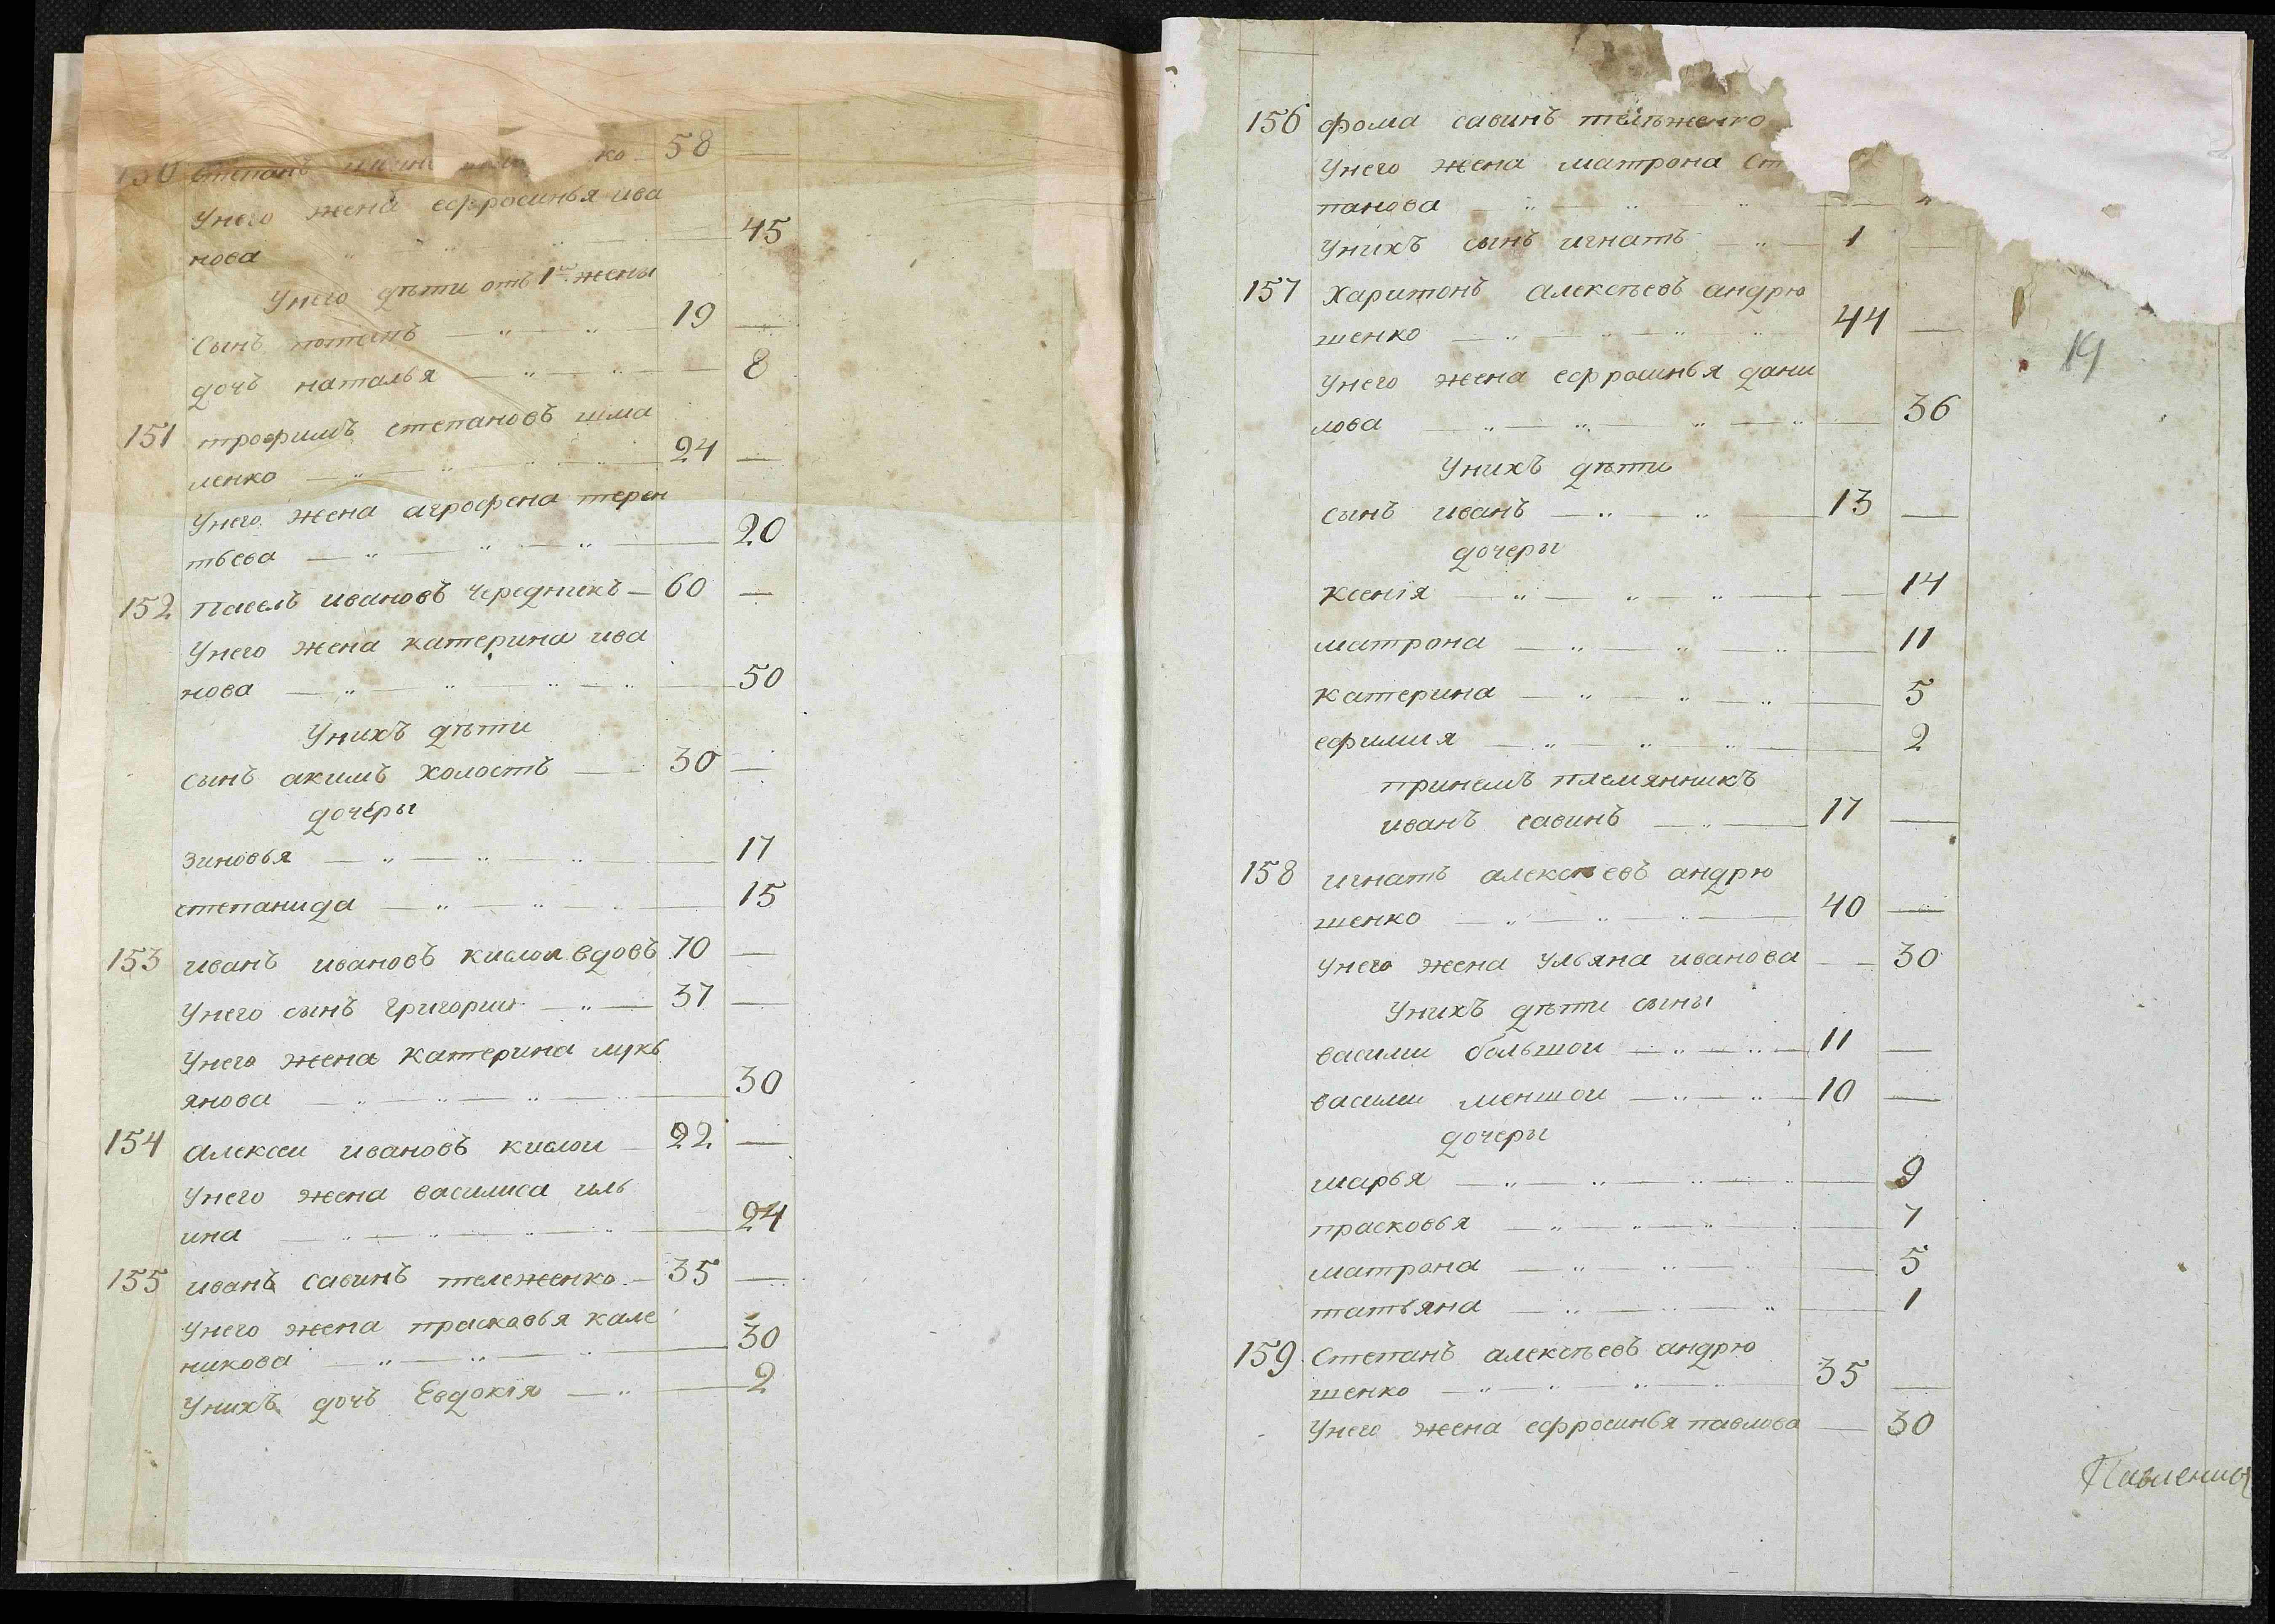 Степанъ ко 58 —
Унего жена ефросинья ива
нова — 45
Унего дѣти отъ 1й жены
Сынъ потапъ — 19 —
дочь наталья — 8
151 трофимъ степановъ шма
ленко — 24 —
Унего жена агрофена терен
тьева — 20
152 Павелъ ивановъ Чередникъ — 60 —
Унего жена катерина ива
нова — 50
Унихъ дѣти
сынъ акимъ холостъ — 30 —
дочеры
зиновья — 17
степанида — 15
153 иванъ ивановъ кислои вдовъ 70 —
Унего сынъ григории — 37 —
Унего жена катерина лукь
янова — 30
154 алексеи ивановъ кислои — 22 —
Унего жена василиса иль
ина — 24
155 иванъ савинъ тележенко — 35 —
Унего жена прасковья кале
никова — 30
Унихъ дочь Евдокія — 2
156 фома савинъ телѣженко
Унего жена матрона Ст
панова —
Унихъ сынъ игнатъ — 1 —
157 Харитонъ алексѣевъ андрю
шенко — 44 —
Унего жена ефросинья дани
лова — 36
Унихъ дѣти
сынъ иванъ — 13 —
дочеры
Ксенія — 14
матрона — 11
катерина — 5
ефимия — 2
приемъ племянникъ
иванъ савинъ — 17 —
19
158 игнатъ алексѣевъ андрю
шенко — 40 —
Унего жена Ульяна иванова — 30
Унихъ дѣти сыны
васили большои — 11 —
васили меншои — 10 —
дочеры
марья — 9
прасковья — 7
матрона — 5
татьяна — 1
159 Степанъ алексѣевъ андрю
шенко — 35 —
Унего жена ефросинья павлова — 30